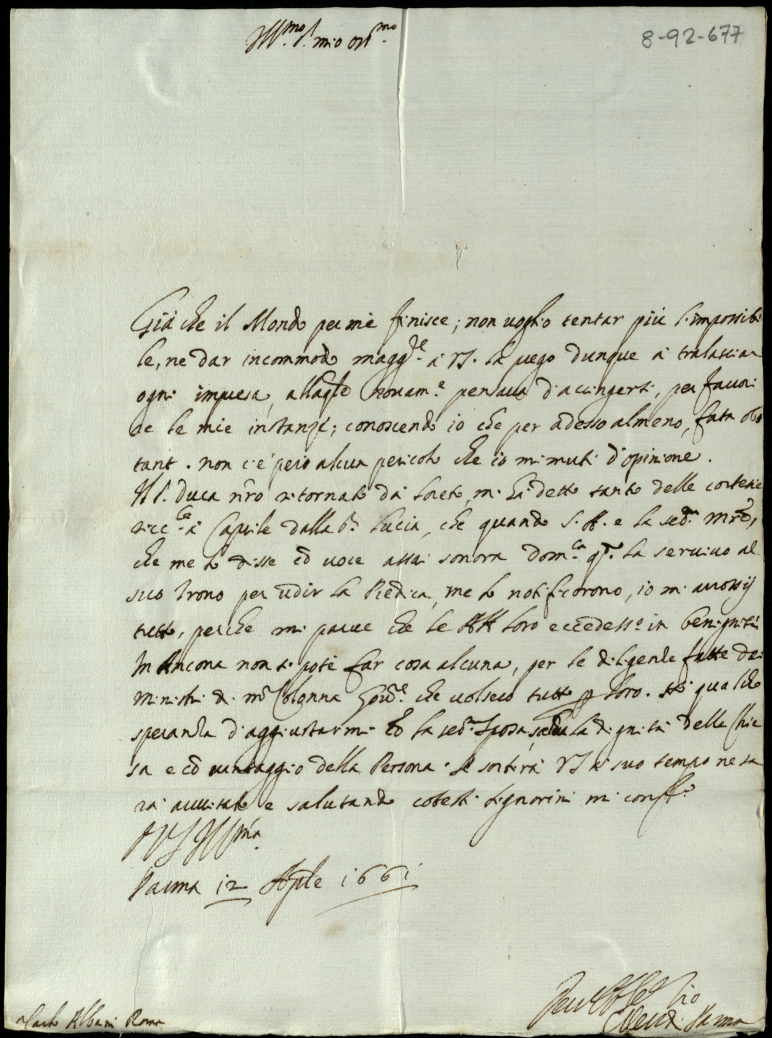 Ill.mo S. mio oss.mo
8-92-677
Già che il Mondo per me finisce; non voglio tentar più l'impossibi
le, ne dar incommodo magg.re à VS. la prego dunque à tralasciar
ogni impresa, alla q.le novam.e pensava d'accingersi, per favori
re le mie instanze; conoscendo io che per adesso almeno, fata ob
stant. non c'è però alcun pericolo che io mi muti d'opinione.
Il S. Duca nro ritornato da Loreto, mi hà detto tanto delle cortesie
à Caprile dalla S.ra Lucia, che quando S. A. e la
che me lo disse cõ voce assai sonora la servivo al
suo Trono per udir la Predica, me lo notificorono, io mi
tutto, perche mi parve che le AA loro eccedess.o in benignità
In Ancona non si potè far cosa alcuna, per le diligenze fatte da
ministri di Colonna Gov.re che volsero tutto p loro. Hò qualche
speranza d'aggiustarmi cõ la Sposa, salva la dignità della Chie
sa e cõ vantaggio della Persona. Se sortirà VS à suo tempo ne sa
rà avvisato e salutando cotesti signorini mi conf.o
D VS Ill.ma
Parma 12 Aple 1661
Carlo Albani Roma